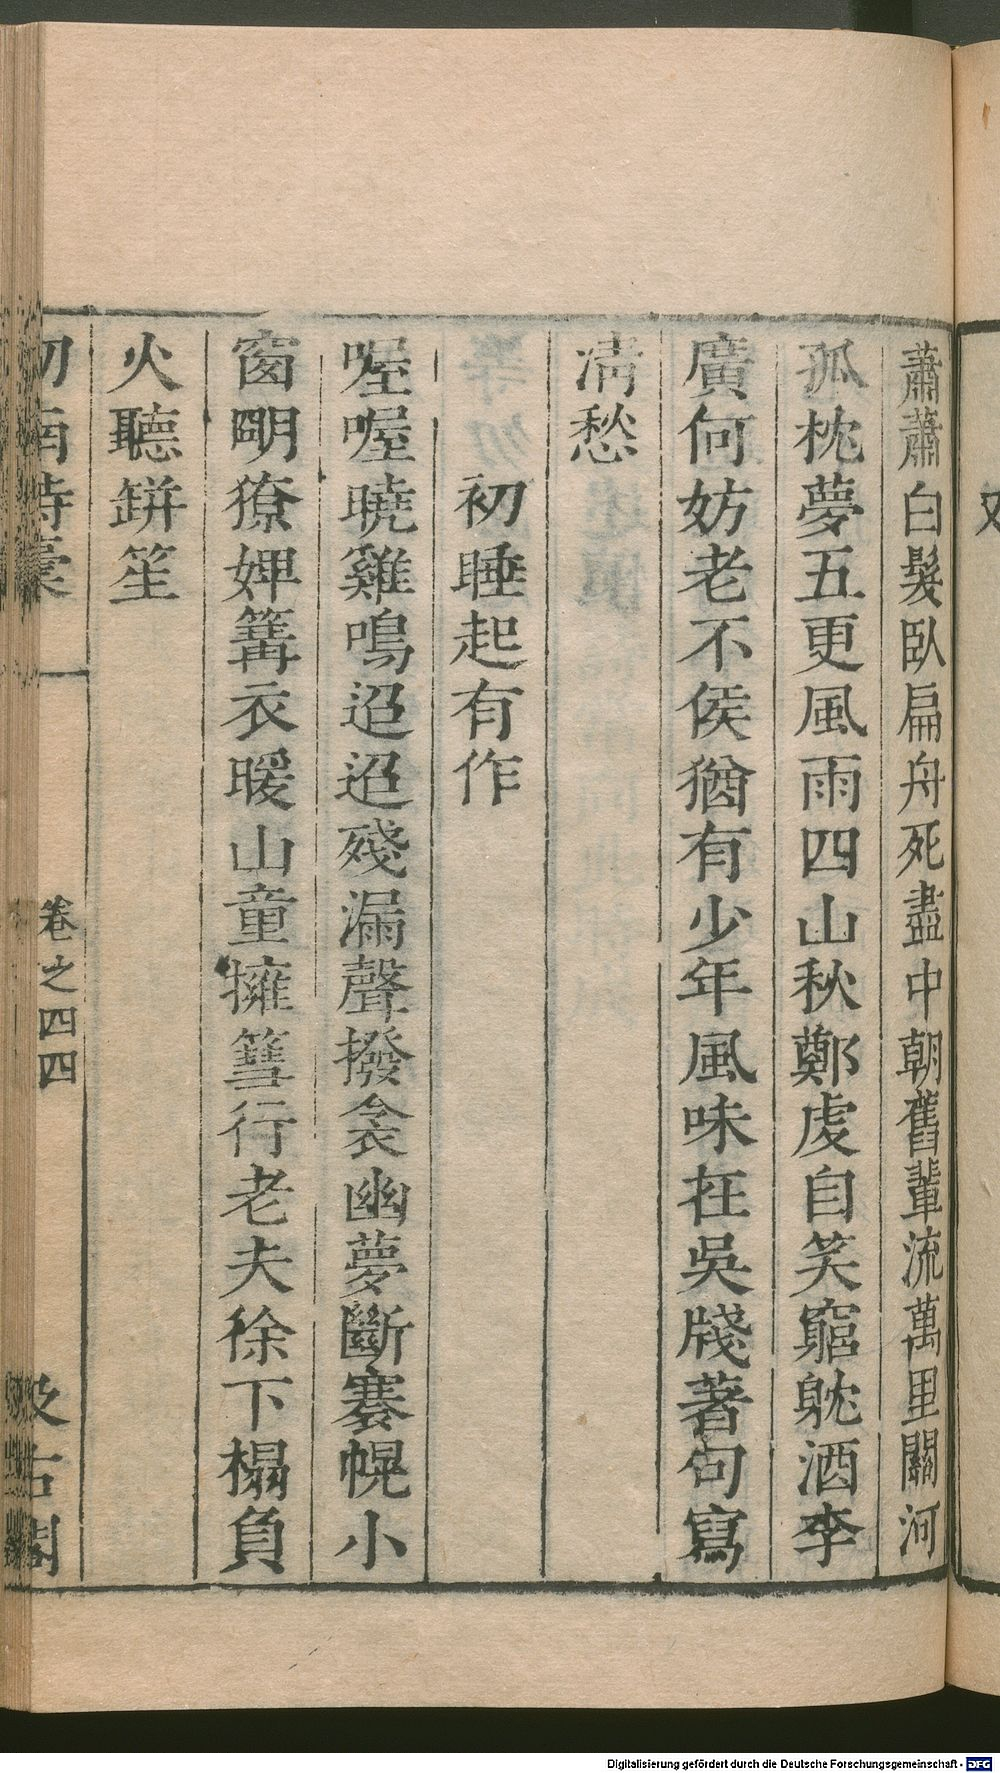 蕭蕭白髮臥扁舟死盡中朝舊輩流萬里關河
孤枕夢五更風雨四山秋鄭虔自笑窮躭酒李
廣何妨老不侯猶有少年風味在吳牋著句寫
淸愁
初睡起有作
喔喔曉雞鳴迢迢殘漏聲撥衾幽夢斷褰幌小
窗明獠婢篝衣暖山童擁篲行老夫徐下榻負
火聽缾笙
卷之四四
汲古閣
Digitalisierung gefördert durch die Deutsche Forschungsgemeinschaft - DFG